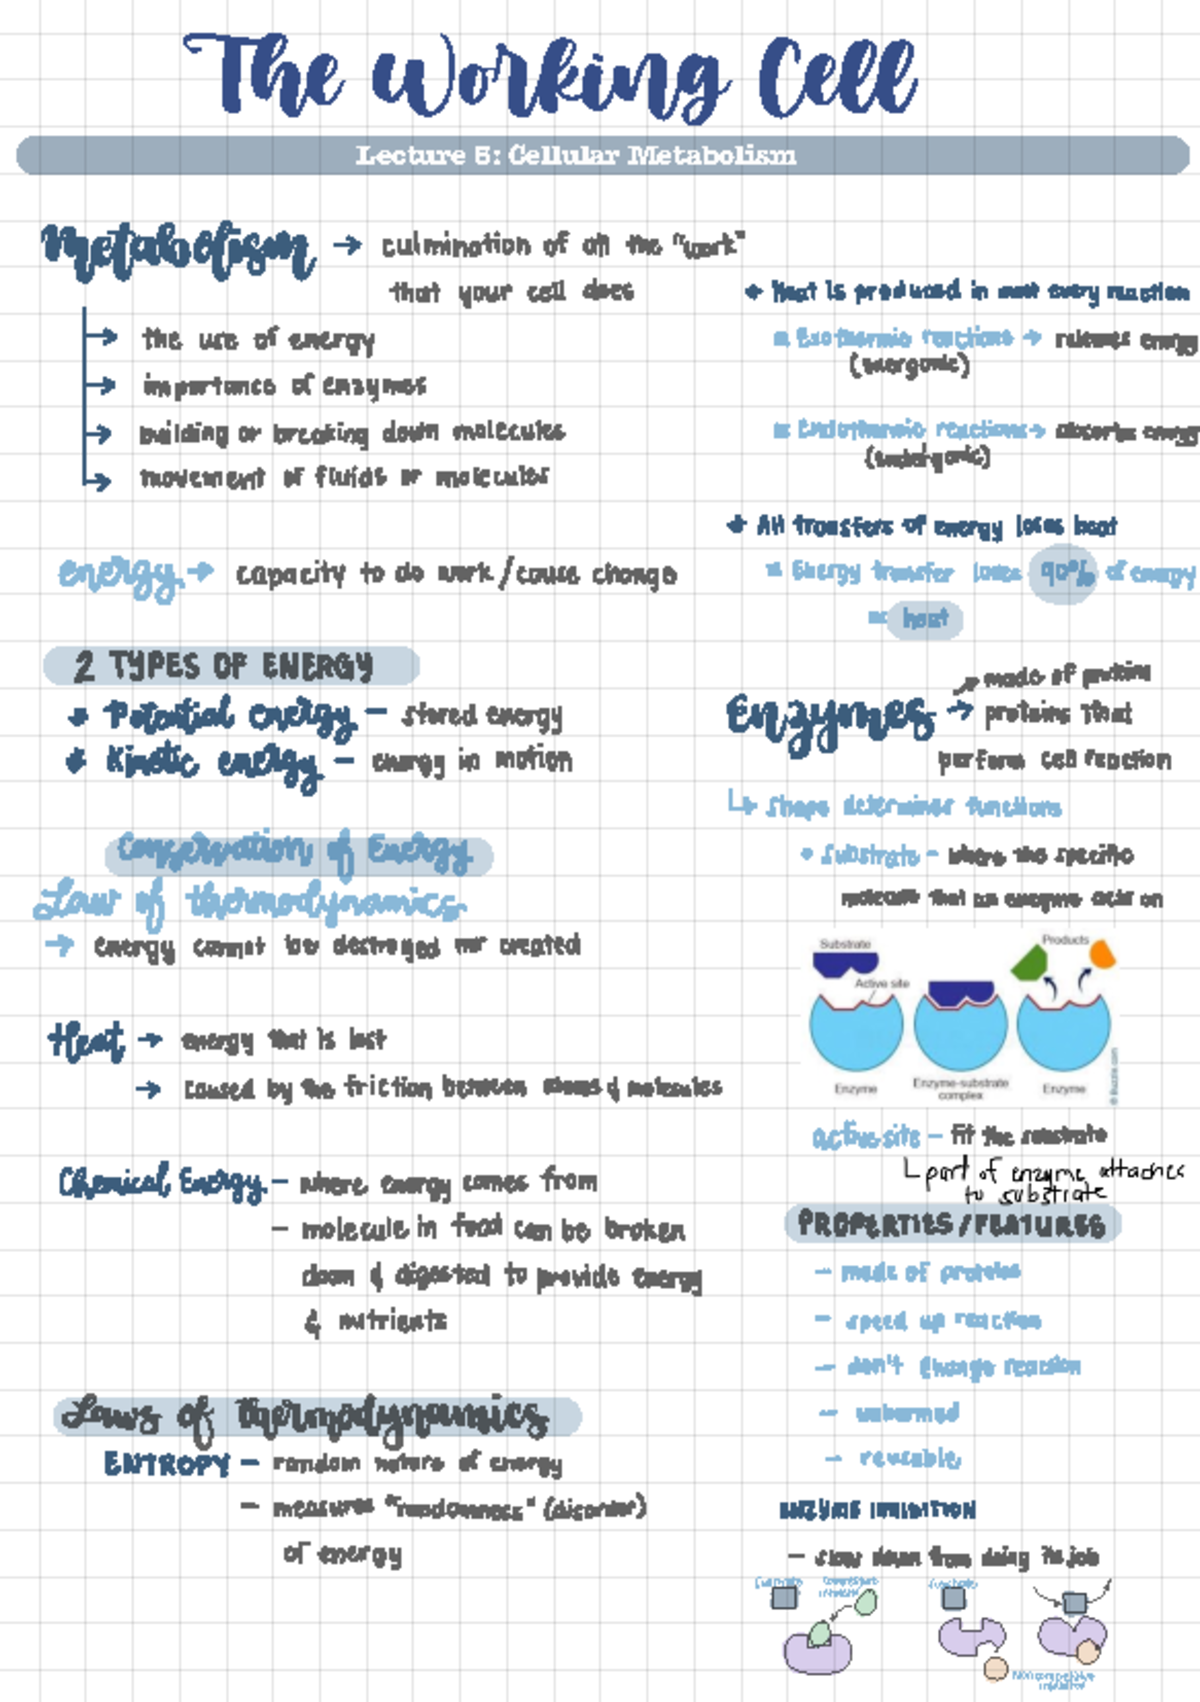 The Working Cell
Lecture 5: Cellular Metabolism
Metabolism → culmination of all the "work"
that your cell does
→ the use of energy
→ importance of enzymes
→ building or breaking down molecules
→ movement of fluids or molecules
energy → capacity to do work/cause change
2 TYPES OF ENERGY
Potential energy – stored energy
Kinetic energy – energy in motion
Conservation of Energy
Law of thermodynamics
→ energy cannot be destroyed nor created
Heat → energy that is lost
→ caused by the friction between atoms & molecules
Chemical Energy – where energy comes from
– molecule in food can be broken
down & digested to provide energy
& nutrients
Laws of thermodynamics
ENTROPY – random nature of energy
– measures "randomness" (disorder)
of energy
Heat is produced in most every reaction
Exothermic reactions → releases energy
(exergonic)
Endothermic reactions → absorbs energy
(endergonic)
All transfers of energy loses heat
Energy transfer loses 90% of energy
heat
→ made of proteins
Enzymes → proteins that
perform cell reaction
↳ shape determines functions
Substrate – where the specific
molecule that an enzyme acts on
Substrate
Products
Active site
Enzyme
Enzyme-substrate
complex
Enzyme
© Buzzle.com
active site – fit the substrate
part of enzyme attaches
to substrate
PROPERTIES/FEATURES
– made of proteins
– speed up reaction
– don't change reaction
– unharmed
– reusable
ENZYME INHIBITION
– slow down from doing its job
Substrate
Competitive
inhibitor
Substrate
Noncompetitive
inhibitor